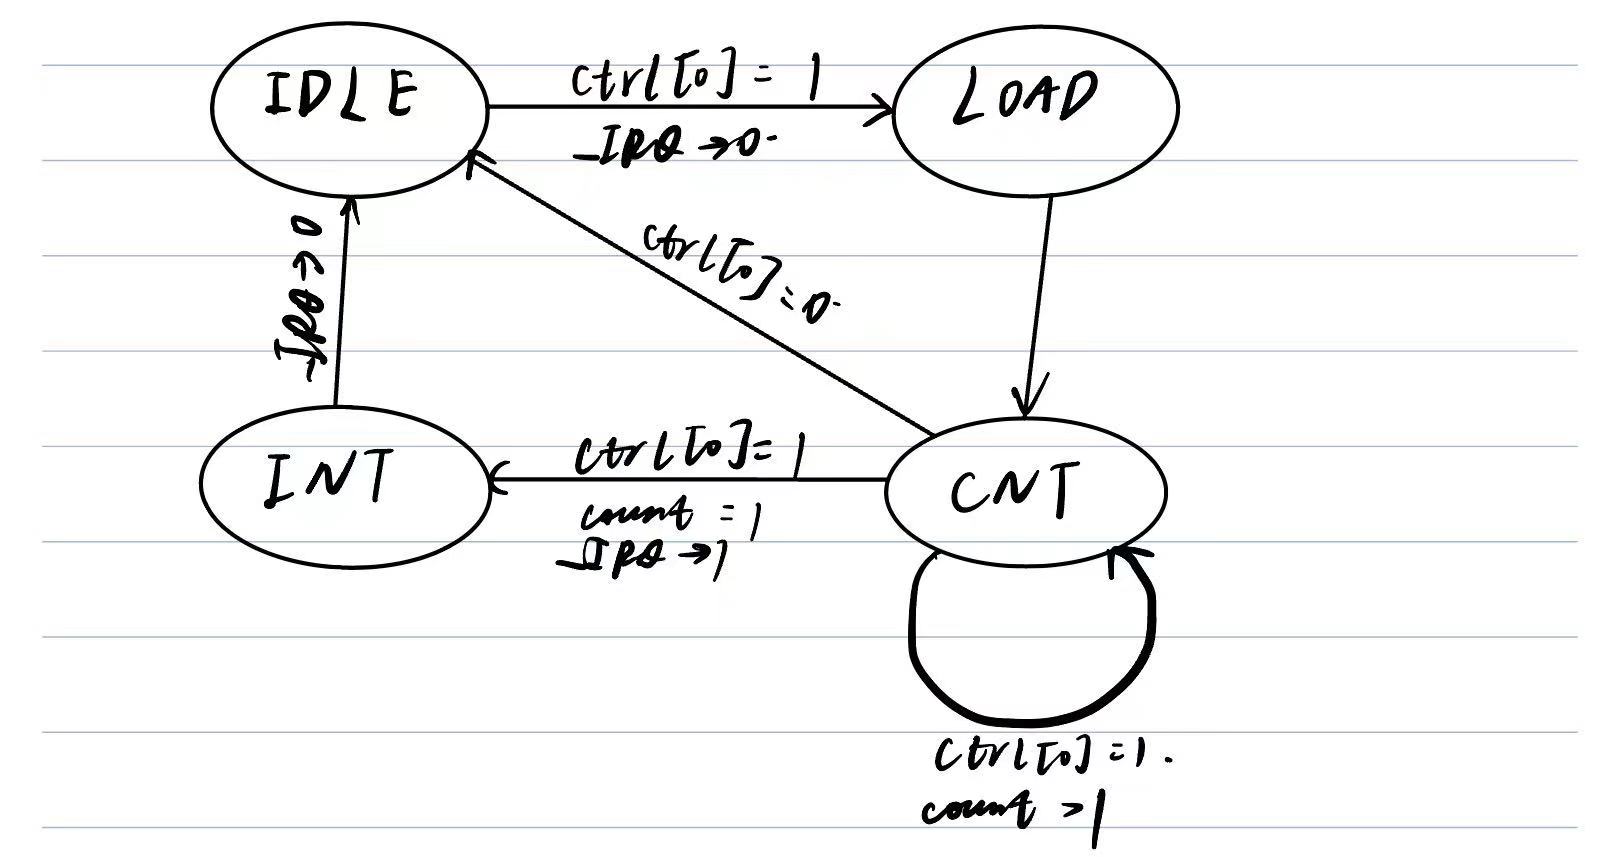 IDLE
ctrl[0] = 1
_IRQ → 0
LOAD
ctrl[0] = 0
_IRQ → 0
INT
ctrl[0] = 1
count = 1
_IRQ → 1
CNT
ctrl[0] = 1.
count > 1